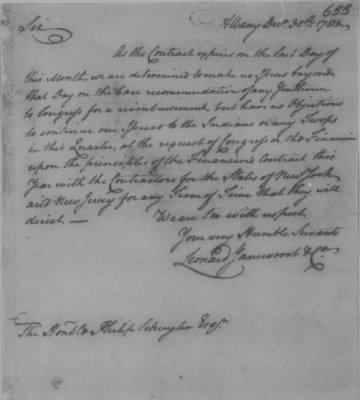 633
Sir
Albany Decr 30th 1782
As the Contract expires on the last Day of
this Month, we are determined to make no Issues beyond
that Day on the bare recommendation of any Gentlemen
to Congress for a reimbursement, but have no Objections
to continue our Issues to the Indians or any Troops
in this Quarter, at the request of Congress or the Financier
upon the principles of the Financiers Contract this
Year with the Contractors for the States of New York
and New Jersey for any Term of Time that they will
direct —
We are Sir with respect
Your very Humble Servants
Leonard Gansevoort & Co.
The Honble Philip Schuyler Esqr.